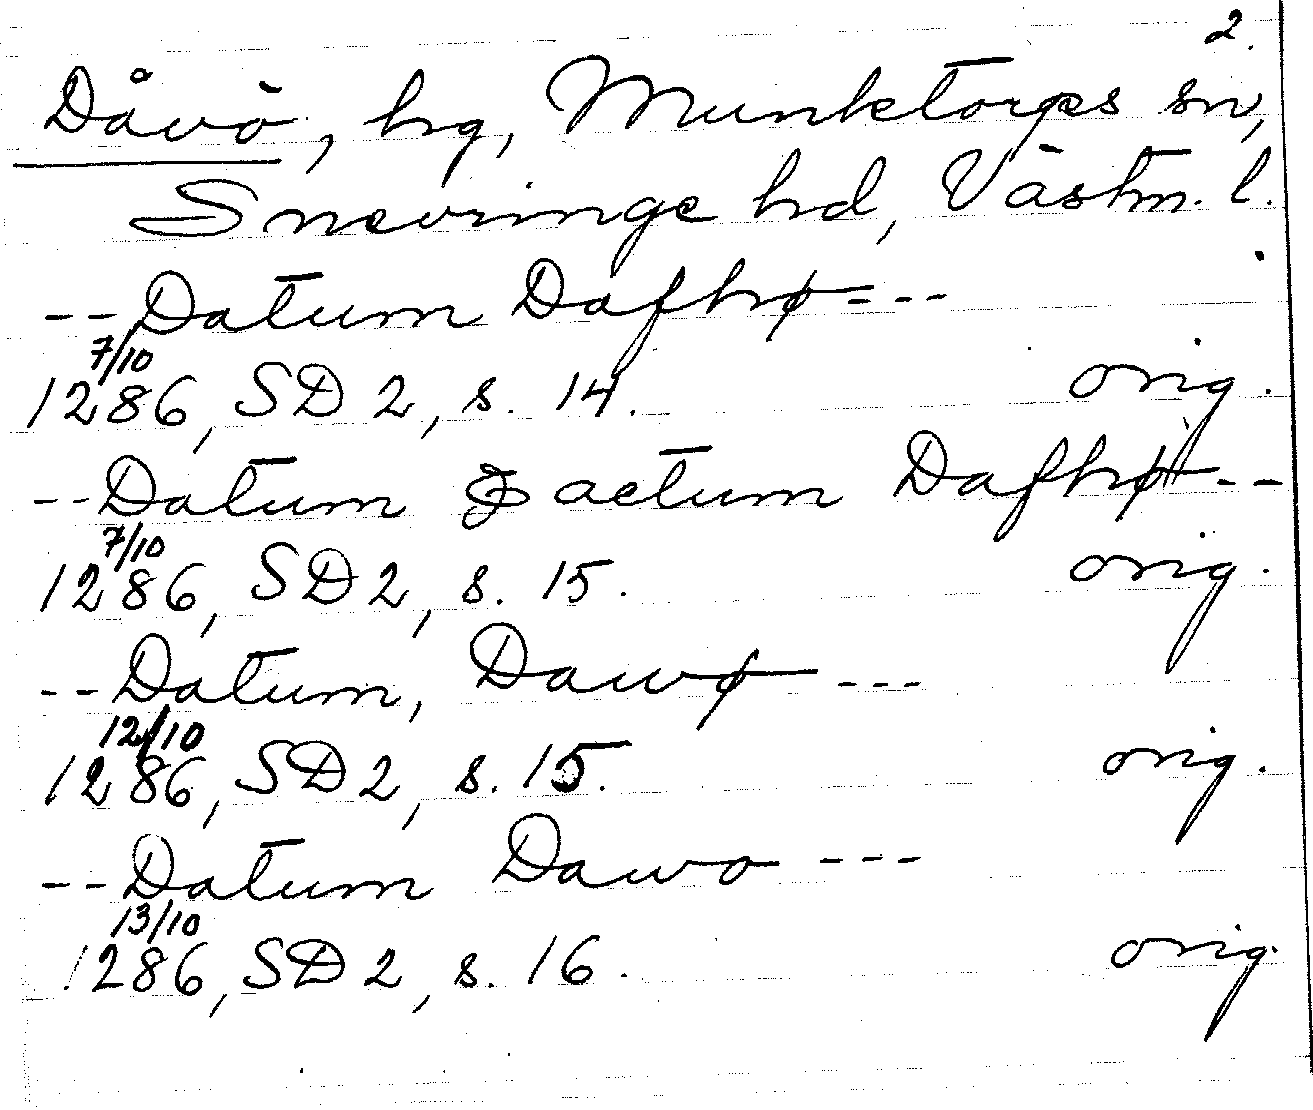 2.
Dåvö, hg, Munktorps sn,
Snevringe hd, Västm. l.
-- Datum Dafhø ---
7/10
1286, SD 2, s. 14. orig.
-- Datum & actum Dafhø --
7/10
1286, SD 2, s. 15. orig.
-- Datum, Dawø ---
12/10
1286, SD 2, s. 15. orig.
-- Datum Dawo ---
13/10
1286, SD 2, s. 16. orig.